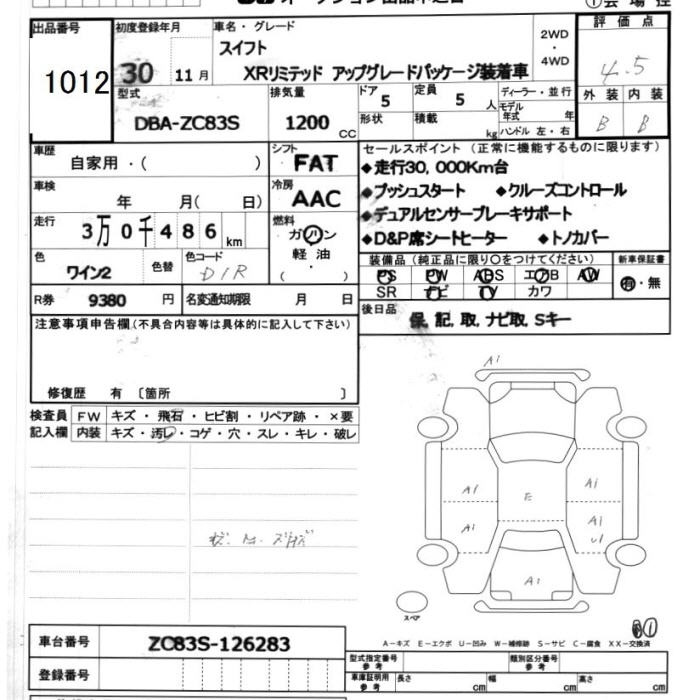 出品番号
1012
初度登録年月
30
11月
車名・グレード
スイフト
XRリミテッド アップグレードパッケージ装着車
2WD
・
4WD
評価点
4.5
外装 内装
B B
型式
DBA-ZC83S
排気量
1200 CC
ドア
5
定員
5 人
形状
積載
kg
ディーラー・並行
モデル年式 年
ハンドル 左・右
車歴
自家用・( )
シフト
FAT
車検
年 月( 日)
冷房
AAC
走行
3万0千486km
燃料
ガソリン
軽油
( ・ )
色
ワイン2
色替
色コード
D1R
R券 9380 円
名変通知期限 月 日
セールスポイント(正常に機能するものに限ります)
◆走行30,000Km台
◆プッシュスタート ◆クルーズコントロール
◆デュアルセンサーブレーキサポート
◆D&P席シートヒーター ◆トノカバー
装備品(純正品に限り○をつけてください)
新車保証書
PS PW ABS エアB AW
SR ナビ TV カワ
有・無
後日品
保,記,取,ナビ取,Sキー
注意事項申告欄(不具合内容等は具体的に記入して下さい)
修復歴 有 〔箇所 〕
検査員
記入欄
FW キズ・飛石・ヒビ割・リペア跡・×要
内装 キズ・汚レ・コゲ・穴・スレ・キレ・破レ
A1
A1
A1
E
A1
A1
U1
A1
スペア
A-キズ E-エクボ U-凹み W-補修跡 S-サビ C-腐食 XX-交換済
車台番号
ZC83S-126283
登録番号
型式指定番号
参考
類別区分番号
参考
車庫証明用
参考
長さ cm 幅 cm 高さ cm